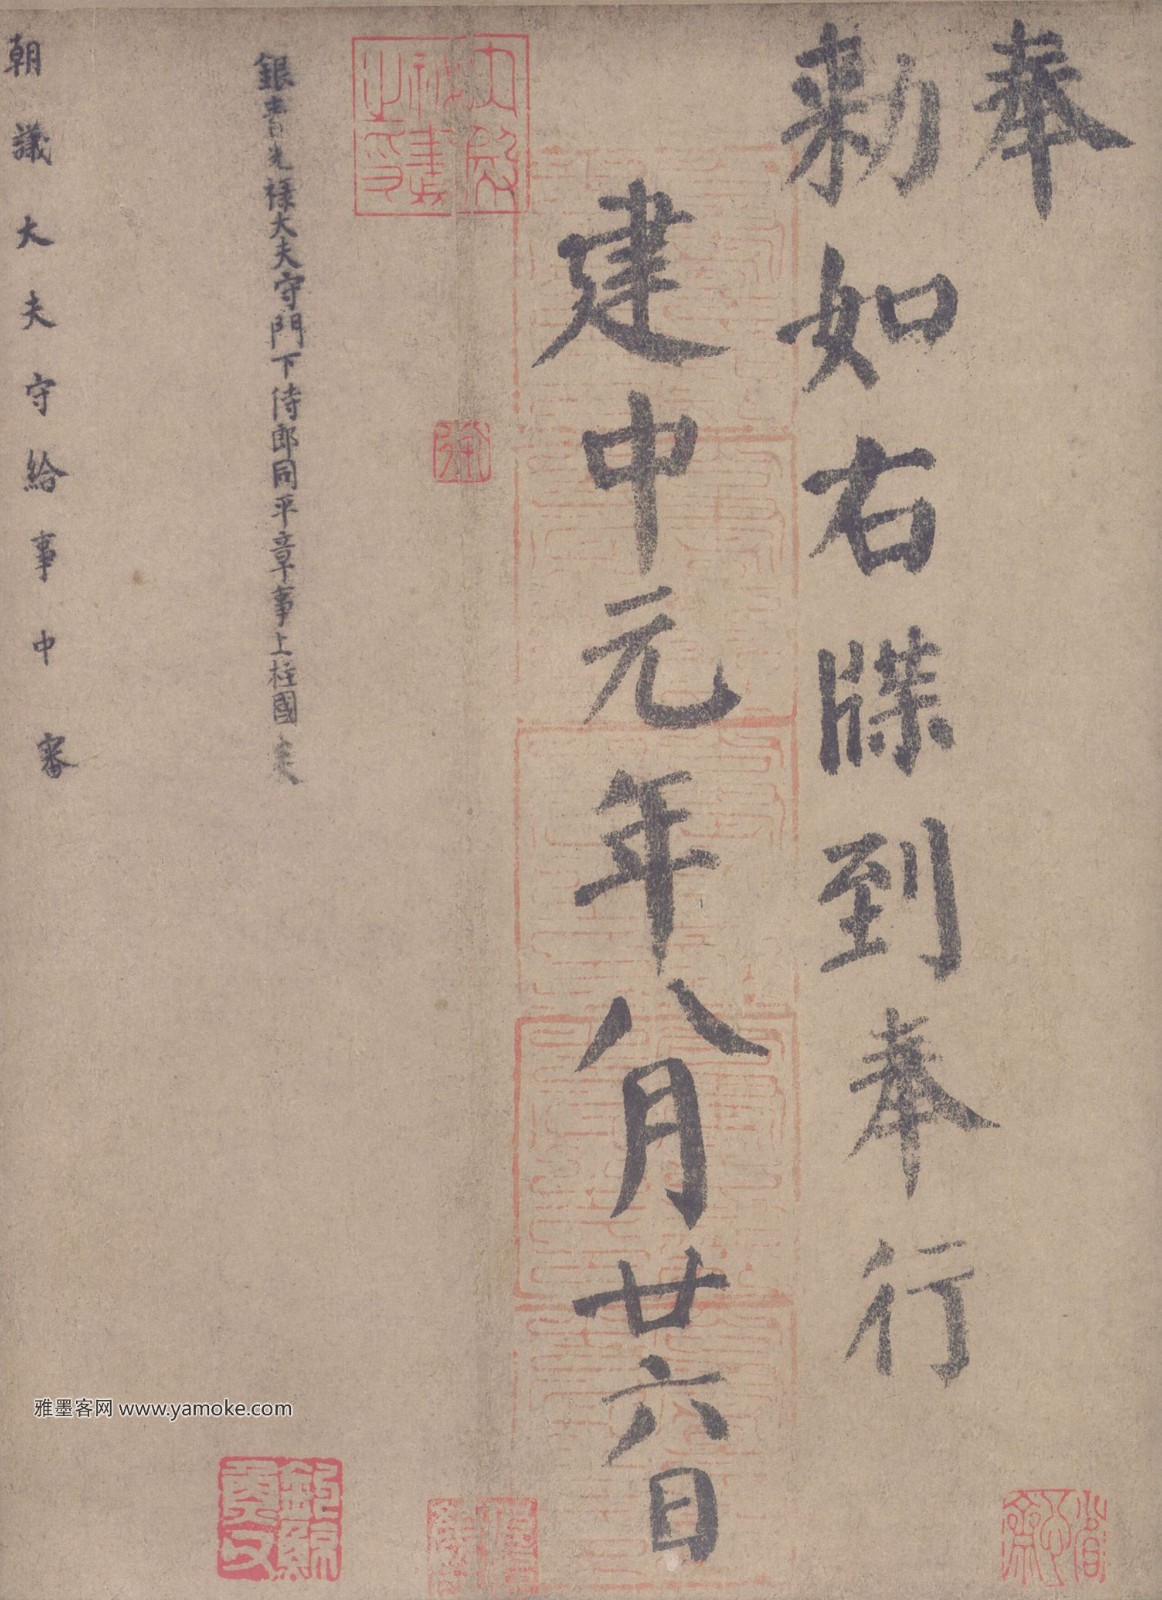 奉
勑如右牒到奉行
建中元年八月廿六日
銀青光祿大夫守門下侍郎同平章事上柱國炎
朝議大夫守給事中審
雅墨客网 www.yamoke.com